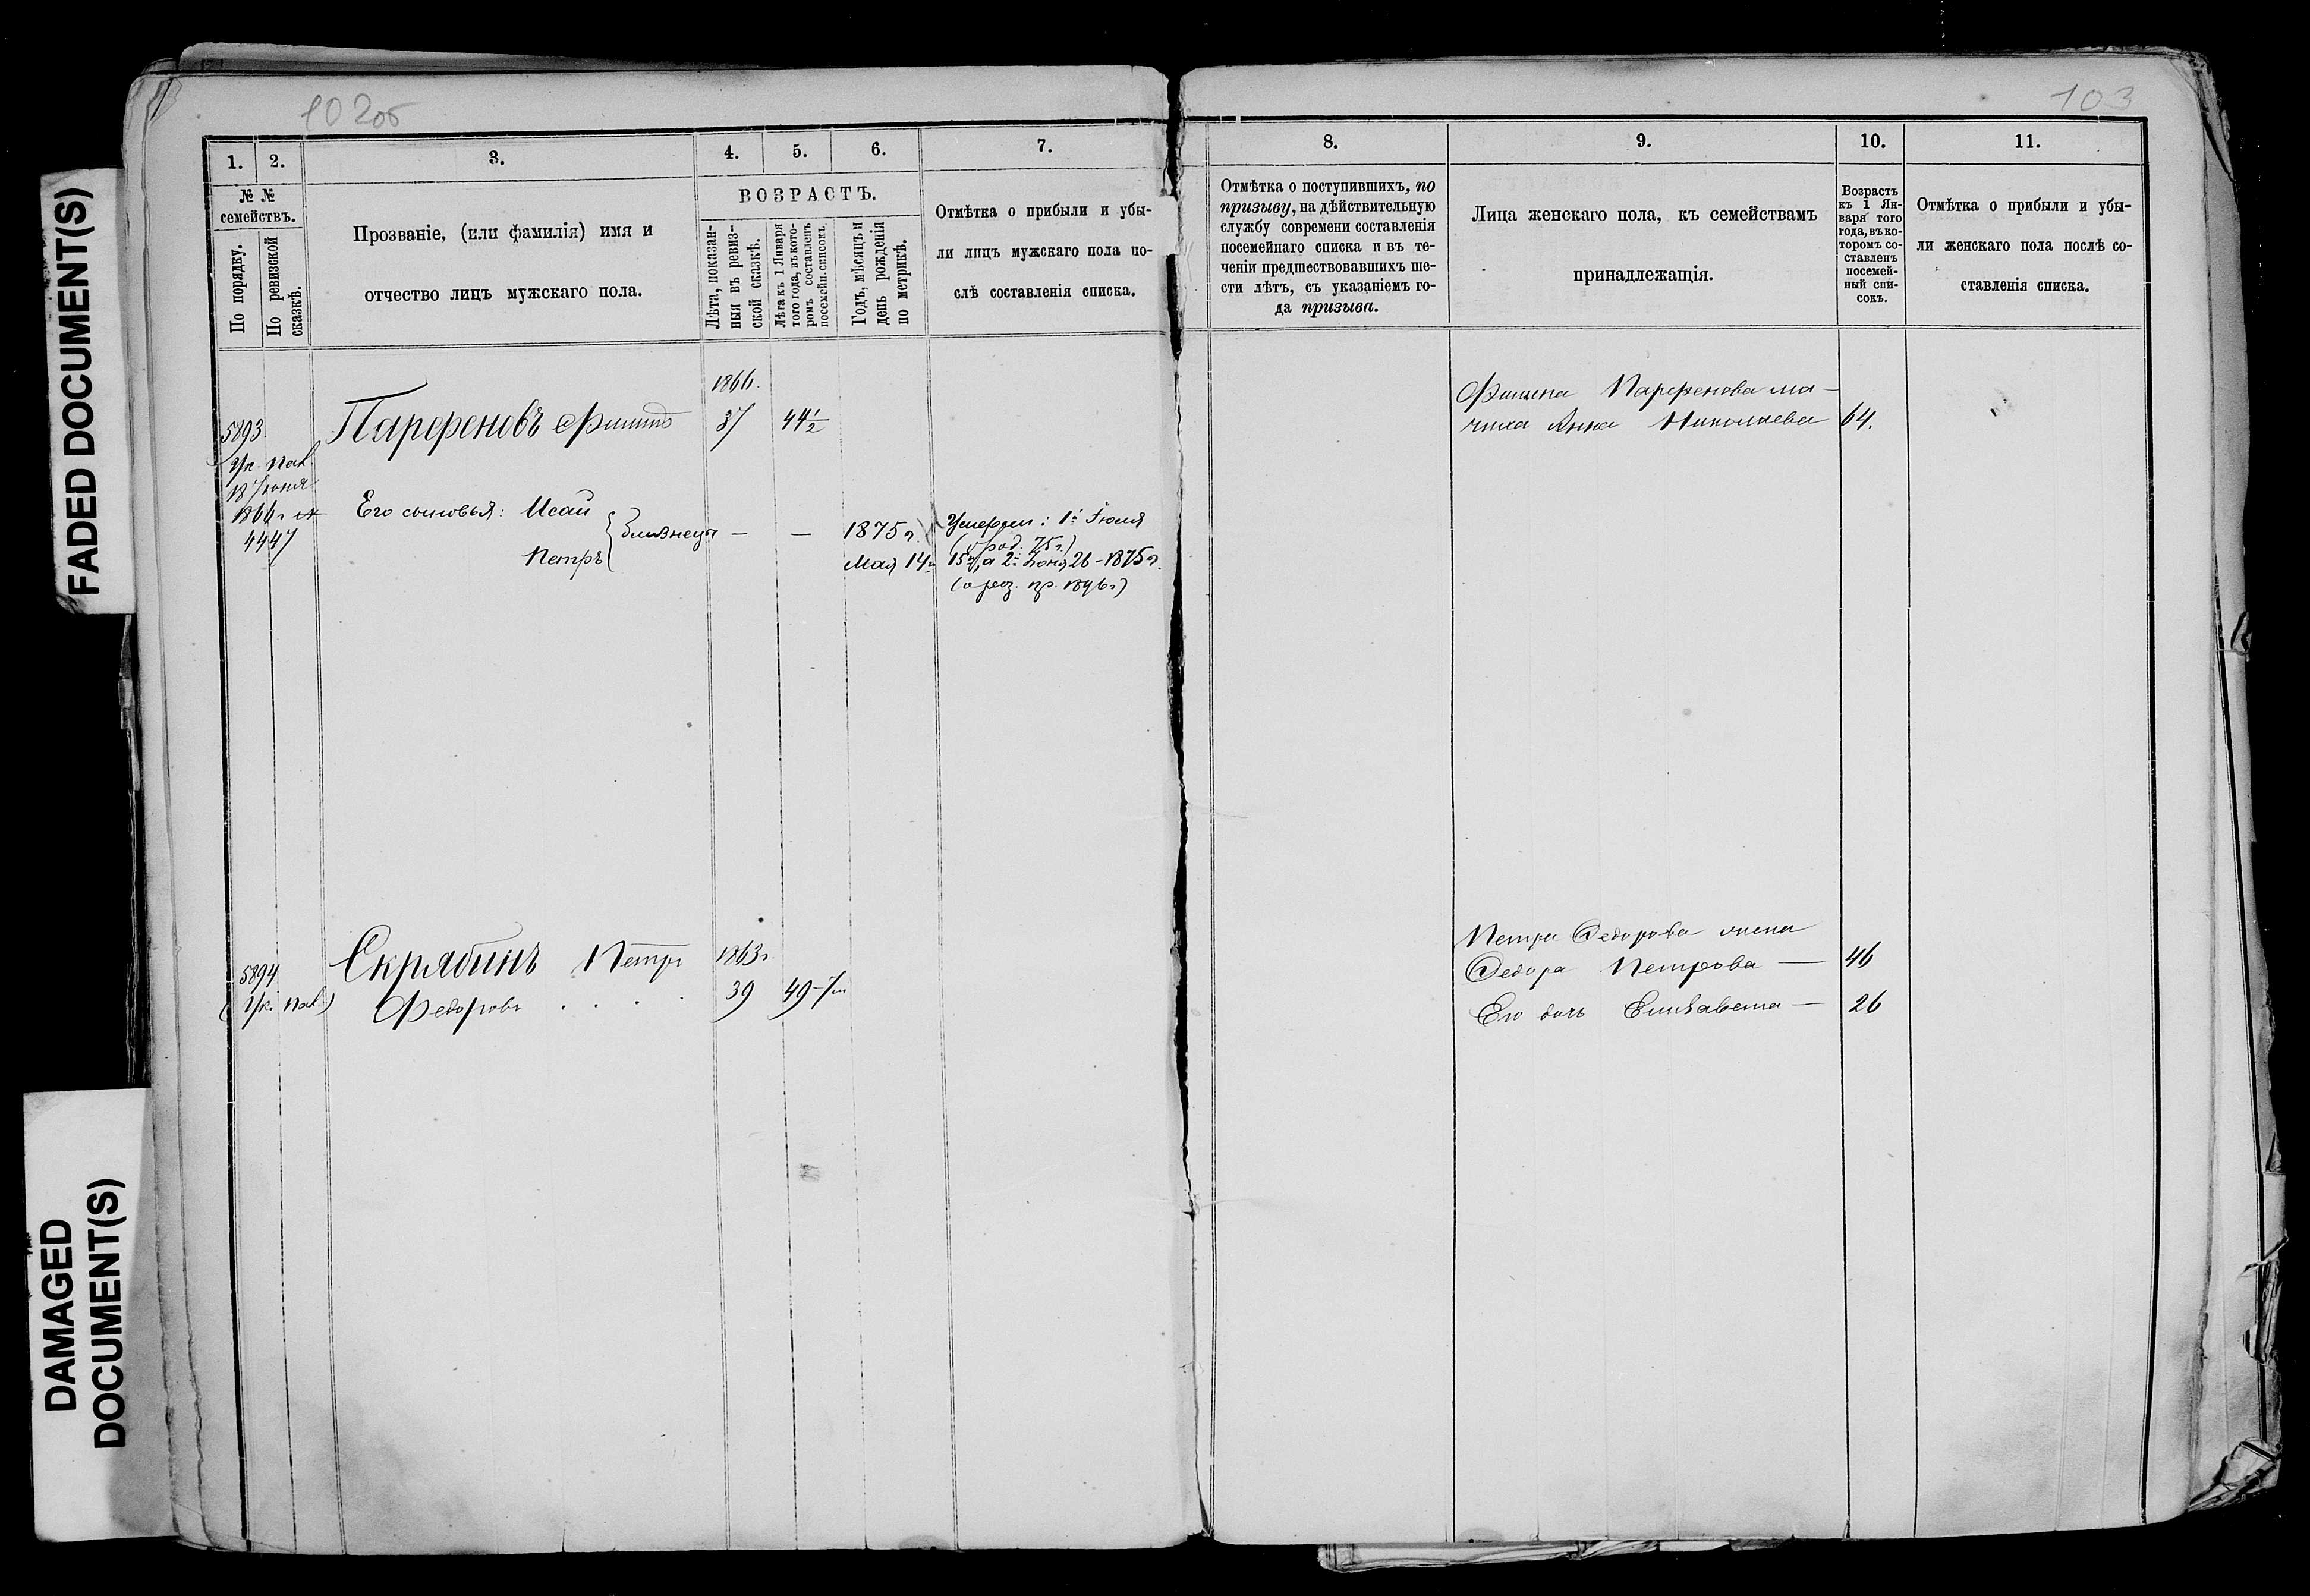 FADED DOCUMENT(S)
DAMAGED
DOCUMENT(S)
102об
1. 2. 3. 4. 5. 6. 7.
№ №
семействъ.
По порядку.
По ревизской
сказкѣ.
Прозваніе, (или фамилія) имя и
отчество лицъ мужскаго пола.
ВОЗРАСТЪ.
Лѣта, показан-
ныя въ ревиз-
ской сказкѣ.
Лѣта къ 1 Января
того года, въ кото-
ромъ составленъ
посемейн. списокъ.
Годъ, мѣсяцъ и
день рожденія
по метрикѣ.
Отмѣтка о прибыли и убы-
ли лицъ мужскаго пола по-
слѣ составленія списка.
1866.
5893 Парфеновъ Филипъ 37 44½
18 Іюня
1866 г.
4447
Его сыновья: Исай
Петръ
близнецы — —
1875 г.
Мая 14
Умерли: 1й Іюля
15, а 2й Іюня 26 - 1875 г.
5894 Скрябинъ Петръ 1863 г.
Федоровъ . . . . 39 49
103
8. 9. 10. 11.
Отмѣтка о поступившихъ, по
призыву, на дѣйствительную
службу современи составленія
посемейнаго списка и въ те-
ченіи предшествовавшихъ ше-
сти лѣтъ, съ указаніемъ го-
да призыва.
Лица женскаго пола, къ семействамъ
принадлежащія.
Возрастъ
къ 1 Ян-
варя того
года, въ ко-
торомъ со-
ставленъ
посемей-
ный спи-
сокъ.
Отмѣтка о прибыли и убы-
ли женскаго пола послѣ со-
ставленія списка.
Филипа Парфенова ма-
чиха Анна Николаева 64.
Петра Федорова жена
Федора Петрова — 46
Его дочь Елизавета — 26